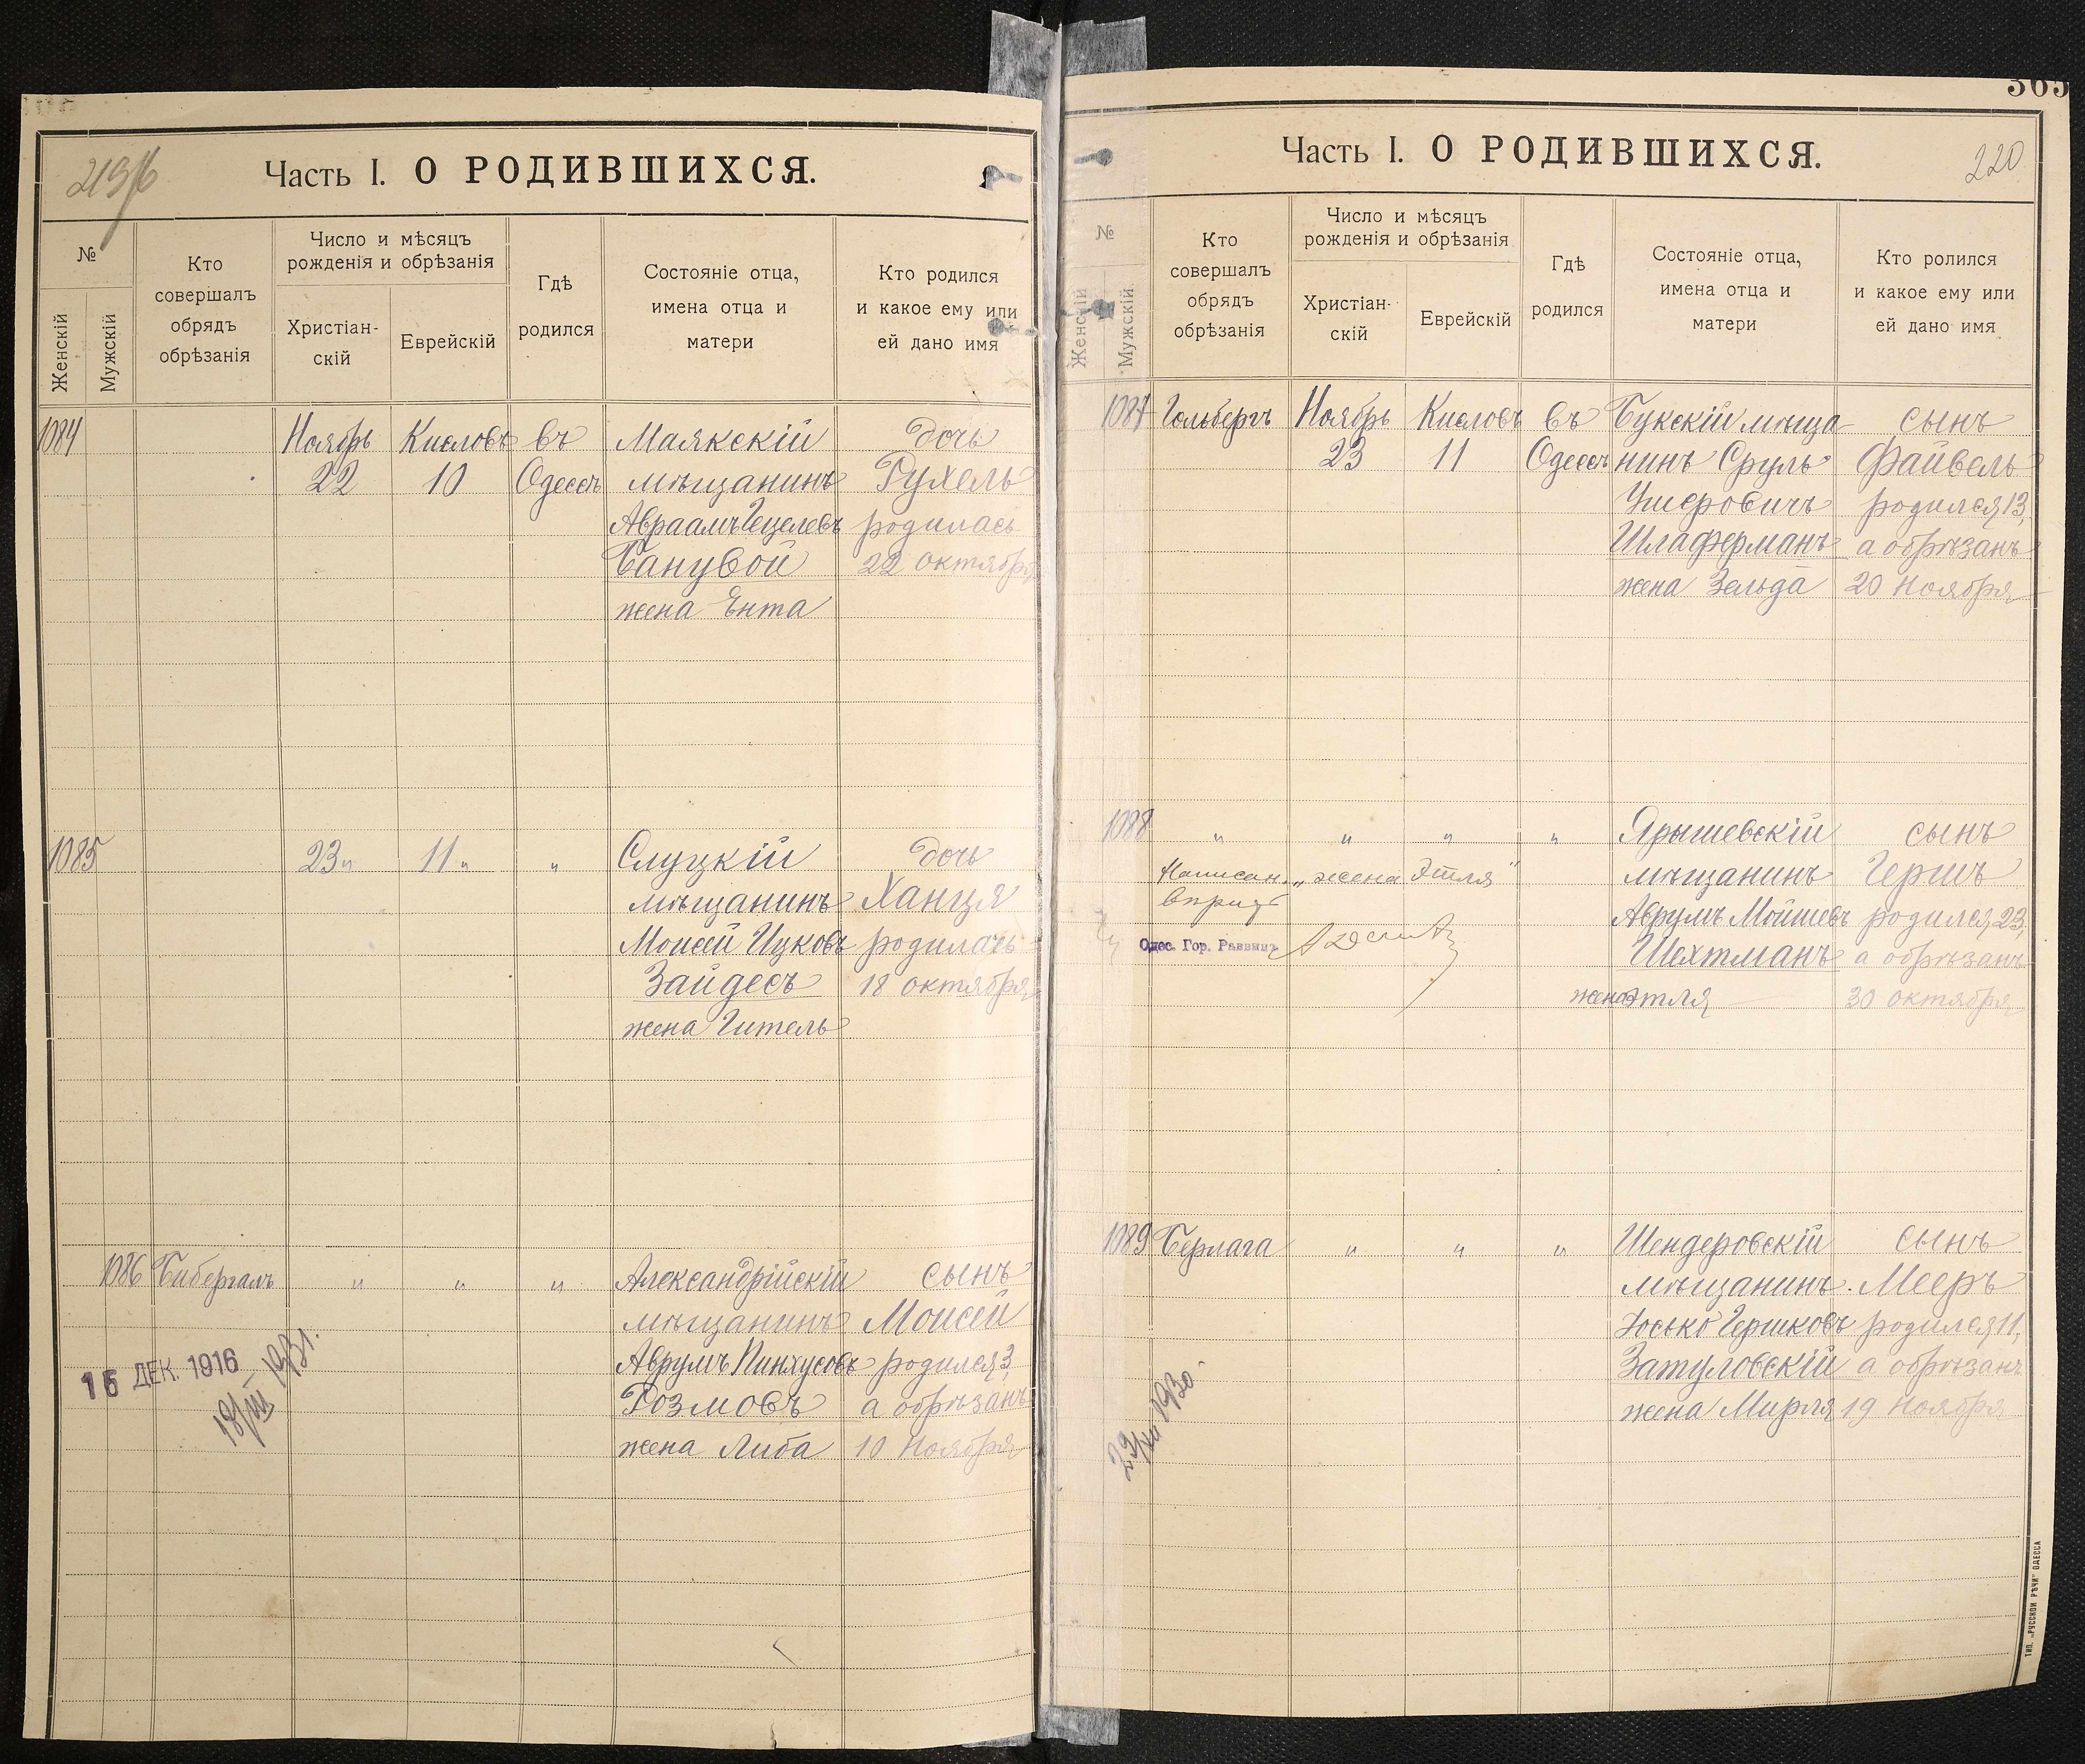 219 об
Часть I. О РОДИВШИХСЯ.
№
Женскій
Мужскій
Кто
совершалъ
обрядъ
обрѣзанія
Число и мѣсяцъ
рожденія и обрѣзанія
Христіан-
скій
Еврейскій
Гдѣ
родился
Состояніе отца,
имена отца и
матери
Кто родился
и какое ему или
ей дано имя
1084 Ноябрь Кисловъ въ Маякскій дочь
22 10 Одессѣ мѣщанинъ Рухель
Авраамъ Гецелевъ родилась
Банувой 22 октября
жена Ента
1085 23 " 11 " " Слуцкій дочь
мѣщанинъ Ханця
Моисей Ицковъ родилась
Зайдесъ 18 октября
жена Гитель
1086 Бибергалъ " " " Александрійскій сынъ
мѣщанинъ Моисей
Аврумъ Пинхусовъ родился 3,
Розмовъ а обрѣзанъ
жена Либа 10 Ноября
15 ДЕК. 1916
18/III 1931.
365
Часть I. О РОДИВШИХСЯ.
220
№
Женскій
Мужскій
Кто
совершалъ
обрядъ
обрѣзанія
Число и мѣсяцъ
рожденія и обрѣзанія
Христіан-
скій
Еврейскій
Гдѣ
родился
Состояніе отца,
имена отца и
матери
Кто ролился
и какое ему или
ей дано имя
1087 Гольбергъ Ноябрь Кисловъ въ Букскій мѣща- сынъ
23 11 Одессѣ нинъ Сруль Файвель
Ушеровичъ родился 13,
Шлаферманъ а обрѣзанъ
жена Зельда 20 Ноября
1088 " " " " Ярышевскій сынъ
Написан. "жена Этля" мѣщанинъ Гершъ
Аврумъ Мойшевъ родился 23,
Одес. Гор. Раввинъ
Шехтманъ а обрѣзанъ
жена Этля 30 октября
1089 Берлага " " " Шендеровскій сынъ
мѣщанинъ Мееръ
Іосько Гершковъ родился 11,
Затуловскій а обрѣзанъ
жена Мирля 19 Ноября
29/XII 1930
ТИП. „РУССКОЙ РѢЧИ" ОДЕССА